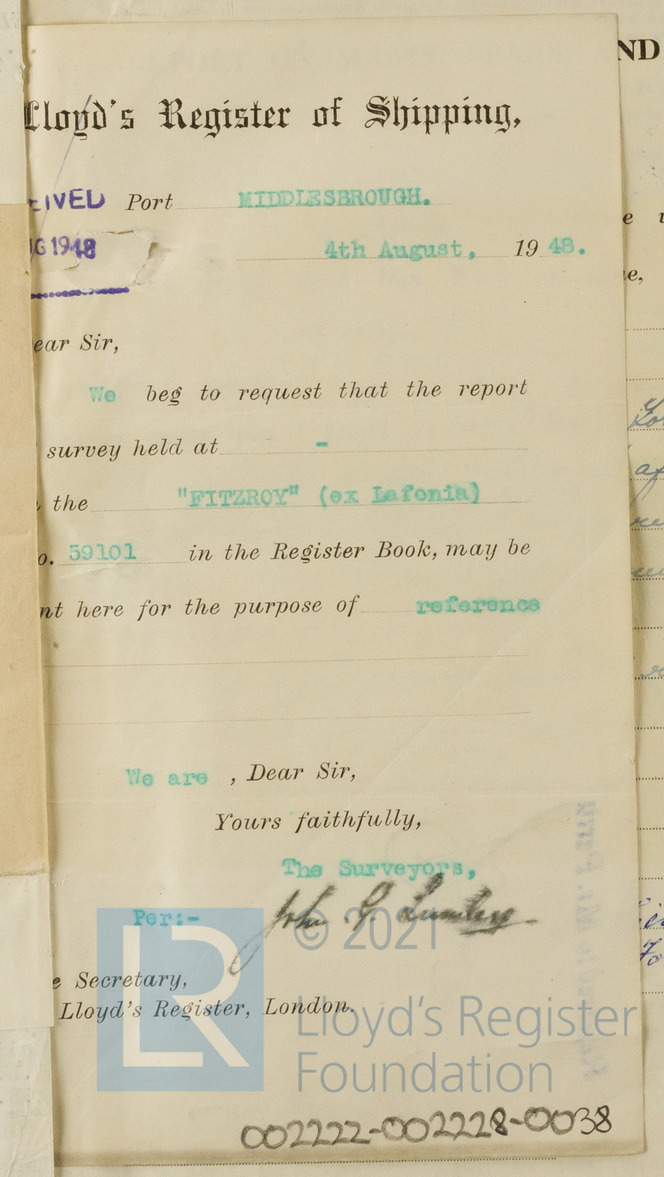 Lloyd's Register of Shipping,
EIVED Port MIDDLESBROUGH.
G 1948 4th August, 19 48.
ear Sir,
We beg to request that the report
survey held at -
the "FITZROY" (ex Lafonia)
o. 59101 in the Register Book, may be
nt here for the purpose of reference
We are , Dear Sir,
Yours faithfully,
The Surveyors,
Per:- John G.
e Secretary,
Lloyd's Register, London.
LR
© 2021
Lloyd's Register
Foundation
002222-002228-0038
ND
e
e,